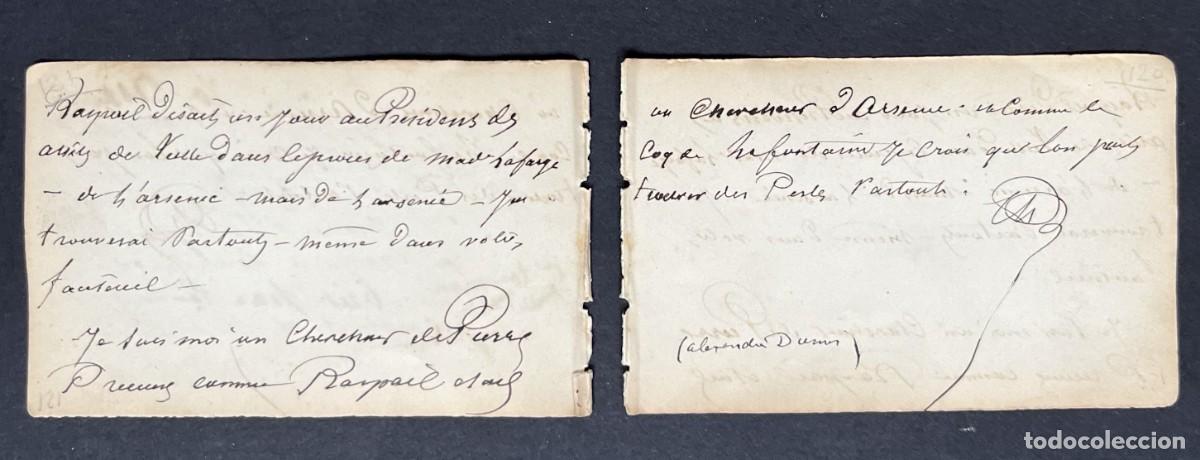 Raspail disait un jour au Président des
assises de Tulle dans le procès de made Lafarge
– de l'arsenic – mais de l'arsenic – j'en
trouverai Partout – même dans votre
fauteuil –
Je suis moi un Chercheur de Pierres
Precieuses comme Raspail etait
121
120
un Chercheur d'Arsenic : et Comme le
Coq de Lafontaine Je crois que l'on peut
trouver des Perles Partout.
(alexandre Dumas)
todocoleccion